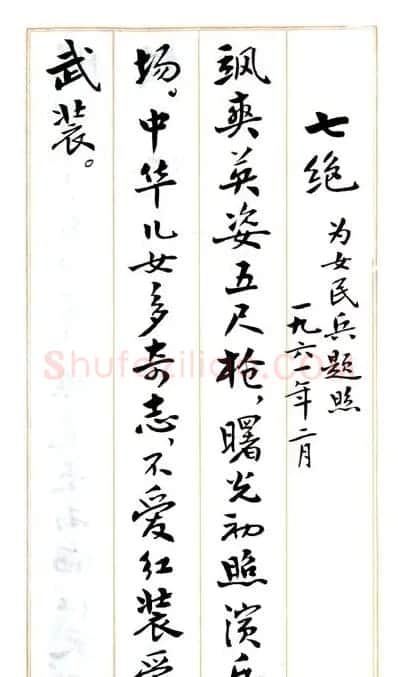 七绝 为女民兵题照
一九六一年二月
飒爽英姿五尺枪，曙光初照演兵
场。中华儿女多奇志，不爱红装爱
武装。